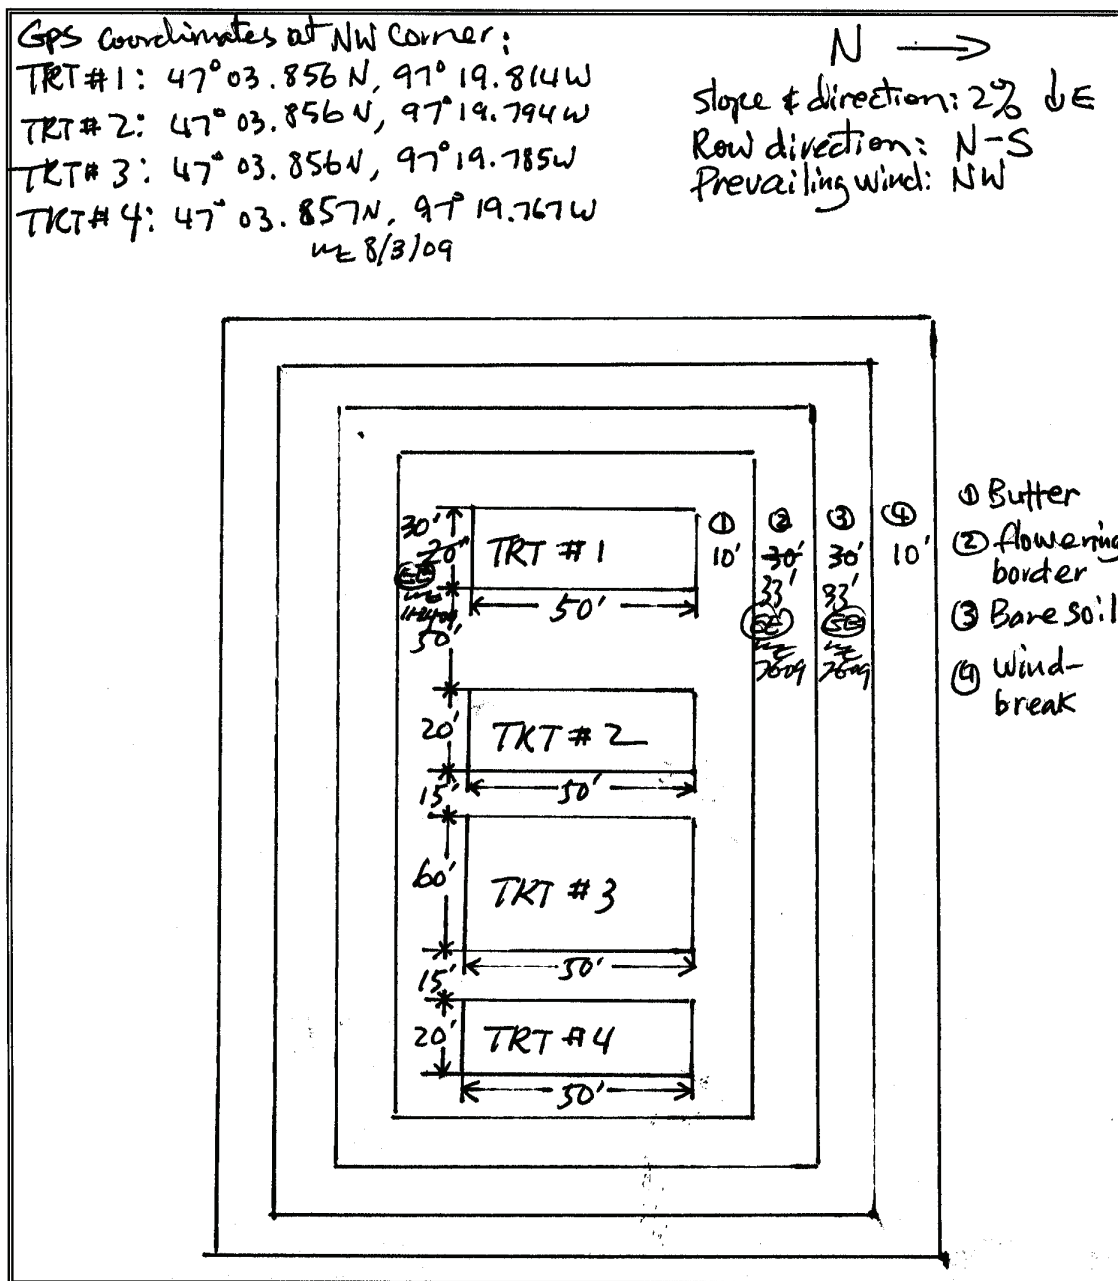 GPS coordinates at NW corner:
TRT#1: 47° 03.856 N, 97° 19.814W
TRT#2: 47° 03.856N, 97° 19.794W
TRT#3: 47° 03.856N, 97° 19.785W
TRT#4: 47° 03.857N, 97° 19.767W
8/3/09
N →
slope & direction: 2% ↓E
Row direction: N-S
Prevailing wind: NW
30'
20'
TRT #1
50'
50'
① ② ③ ④
10' 30' 30' 10'
33' 33'
SE SE
7609 7609
① Buffer
② flowering
border
③ Bare soil
④ Wind-
break
20'
TRT #2
50'
15'
60'
TRT #3
50'
15'
20'
TRT #4
50'